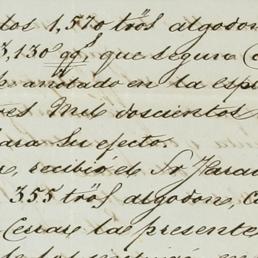 dos 1,570 tr͠os algodon
3,130 qq.s, que segun C
anotado en la esp
res Mil doscientos
ara su efecto.
r, recibió el Sr. Jara
355 tr͠os algodon, C
Cerrar la presente